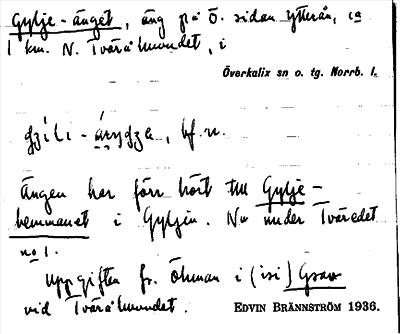 Gylje-änget, äng på Ö. sidan ytterån, ca
1 km. N. Tväråmundet, i
Överkalix sn o. tg. Norrb. l.
Ängen har förr hört till Gylje-
hemmanet i Gyljen. Nu under Tväredet
no 1.
Uppgiften fr. Öhman i (isi) Grav
vid Tväråmundet.
EDVIN BRÄNNSTRÖM 1936.